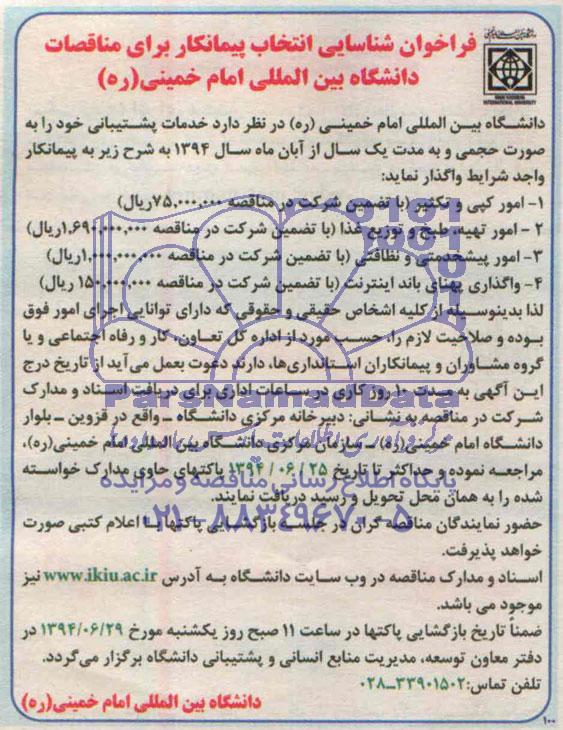 فراخوان شناسایی انتخاب پیمانکار برای مناقصات
دانشگاه بین المللی امام خمینی(ره)
IMAM KHOMEINI
INTERNATIONAL UNIVERSITY
دانشگاه بین المللی امام خمینی (ره) در نظر دارد خدمات پشتیبانی خود را به
صورت حجمی و به مدت یک سال از آبان ماه سال ۱۳۹۴ به شرح زیر به پیمانکار
واجد شرایط واگذار نماید:
۱- امور کپی و تکثیر (با تضمین شرکت در مناقصه ۷۵,۰۰۰,۰۰۰ریال)
۲ - امور تهیه، طبخ و توزیع غذا (با تضمین شرکت در مناقصه ۱,۶۹۰,۰۰۰,۰۰۰ریال)
۳- امور پیشخدمتی و نظافتی (با تضمین شرکت در مناقصه ۱,۰۰۰,۰۰۰,۰۰۰ریال)
۴- واگذاری پهنای باند اینترنت (با تضمین شرکت در مناقصه ۱۵۰,۰۰۰,۰۰۰ ریال)
لذا بدینوسیله از کلیه اشخاص حقیقی و حقوقی که دارای توانایی اجرای امور فوق
بوده و صلاحیت لازم را، حسب مورد از اداره کل تعاون، کار و رفاه اجتماعی و یا
گروه مشاوران و پیمانکاران استانداری‌ها، دارند دعوت بعمل می‌آید از تاریخ درج
این آگهی به مدت ۱۰ روز کاری در ساعات اداری برای دریافت اسناد و مدارک
شرکت در مناقصه به نشانی: دبیرخانه مرکزی دانشگاه ـ واقع در قزوین ـ بلوار
دانشگاه امام خمینی(ره) ـ سازمان مرکزی دانشگاه بین المللی امام خمینی(ره)،
مراجعه نموده و حداکثر تا تاریخ ۲۵ / ۰۶ / ۱۳۹۴ پاکتهای حاوی مدارک خواسته
شده را به همان محل تحویل و رسید دریافت نمایند.
حضور نمایندگان مناقصه گران در جلسه بازگشایی پاکتها با اعلام کتبی صورت
خواهد پذیرفت.
اسناد و مدارک مناقصه در وب سایت دانشگاه به آدرس www.ikiu.ac.ir نیز
موجود می باشد.
ضمناً تاریخ بازگشایی پاکتها در ساعت ۱۱ صبح روز یکشنبه مورخ ۱۳۹۴/۰۶/۲۹ در
دفتر معاون توسعه، مدیریت منابع انسانی و پشتیبانی دانشگاه برگزار می‌گردد.
تلفن تماس:۳۳۹۰۱۵۰۲-۰۲۸
دانشگاه بین المللی امام خمینی(ره)
۱۰۰
ParsNamadData
پایگاه اطلاع رسانی مناقصه و مزایده
۰۲۱-۸۸۳۴۹۶۷۰-۵